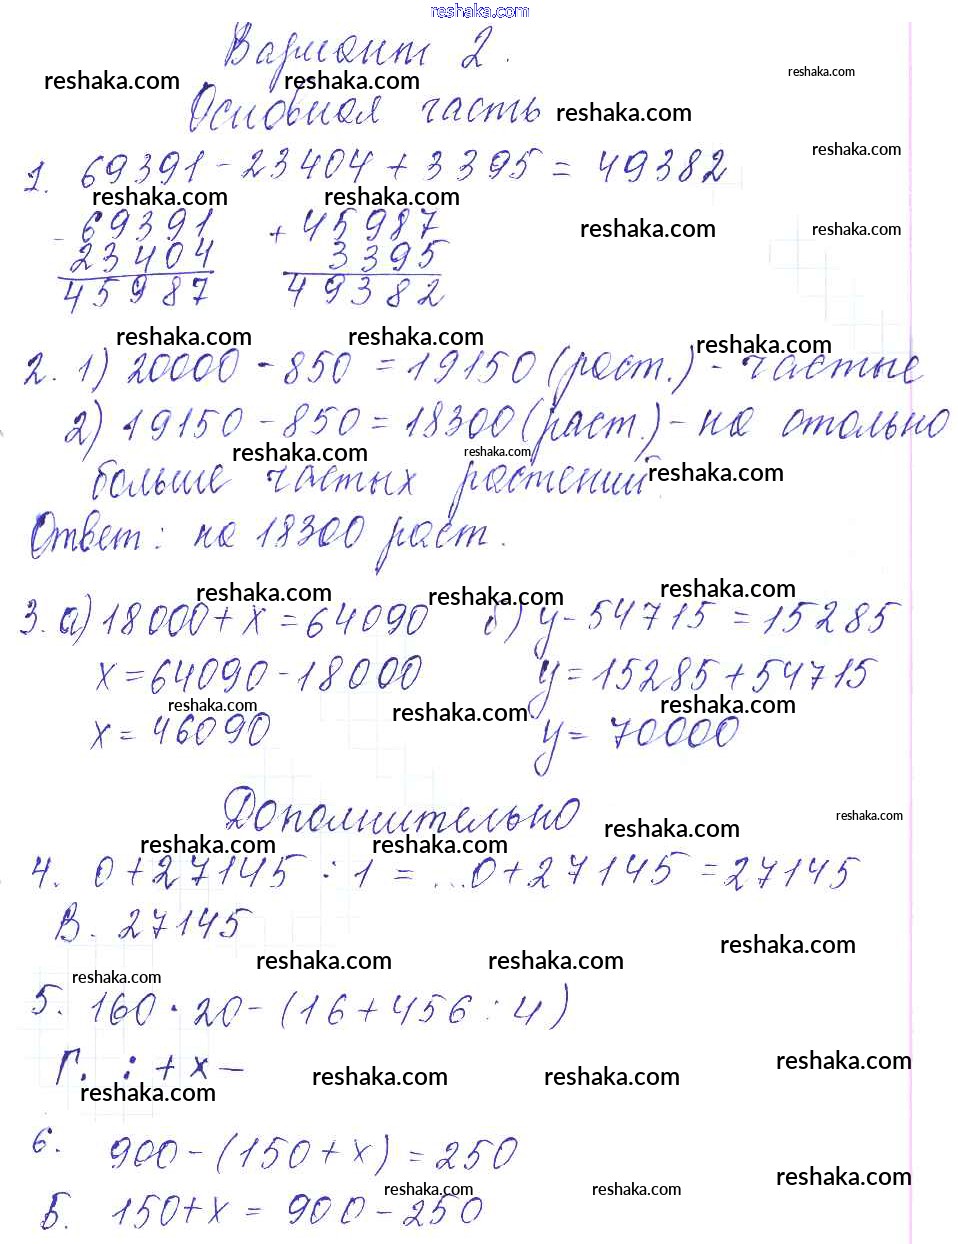 reshaka.com
Вариант 2.
reshaka.com reshaka.com reshaka.com
Основная часть reshaka.com
1. 69391 - 23404 + 3395 = 49382 reshaka.com
reshaka.com reshaka.com
- 69391 + 45987 reshaka.com reshaka.com
23404 3395
45987 49382
reshaka.com reshaka.com reshaka.com
2. 1) 20000 - 850 = 19150 (раст.) - частые
2) 19150 - 850 = 18300 (раст.) - на столько
reshaka.com reshaka.com reshaka.com
больше частых растений.
Ответ: на 18300 раст.
reshaka.com reshaka.com reshaka.com
3. а) 18000 + x = 64090 б) y - 54715 = 15285
x = 64090 - 18000 y = 15285 + 54715
reshaka.com reshaka.com reshaka.com
x = 46090 y = 70000
Дополнительно
reshaka.com reshaka.com reshaka.com reshaka.com
4. 0 + 27145 : 1 = ...0 + 27145 = 27145
В. 27145
reshaka.com reshaka.com reshaka.com reshaka.com
5. 160 · 20 - (16 + 456 : 4)
Г. : + x - reshaka.com
reshaka.com reshaka.com reshaka.com
6. 900 - (150 + x) = 250
reshaka.com reshaka.com reshaka.com
Б. 150 + x = 900 - 250